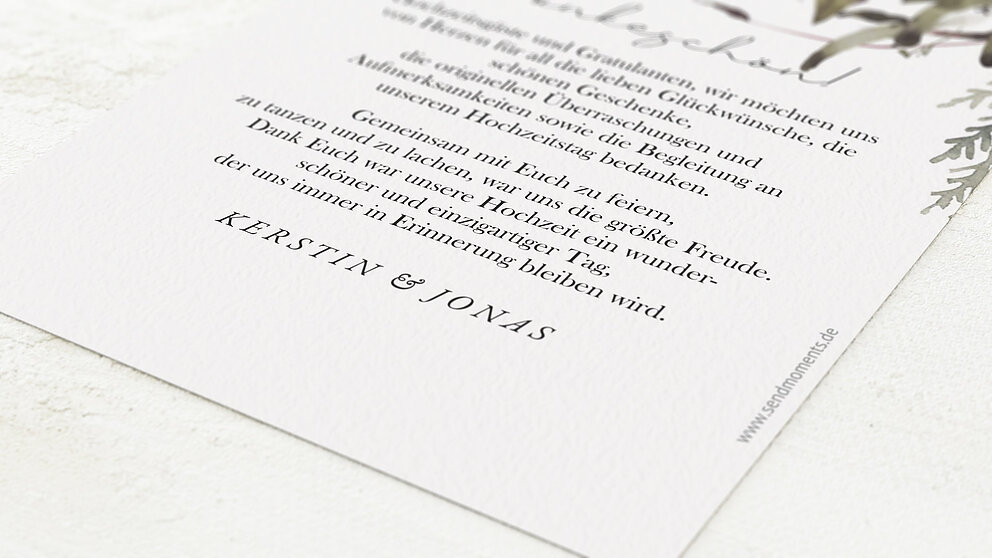 Hochzeitsgäste und Gratulanten, wir möchten uns
von Herzen für all die lieben Glückwünsche, die
schönen Geschenke,
die originellen Überraschungen und
Aufmerksamkeiten sowie die Begleitung an
unserem Hochzeitstag bedanken.
Gemeinsam mit Euch zu feiern,
zu tanzen und zu lachen, war uns die größte Freude.
Dank Euch war unsere Hochzeit ein wunder-
schöner und einzigartiger Tag,
der uns immer in Erinnerung bleiben wird.
KERSTIN & JONAS
www.sendmoments.de